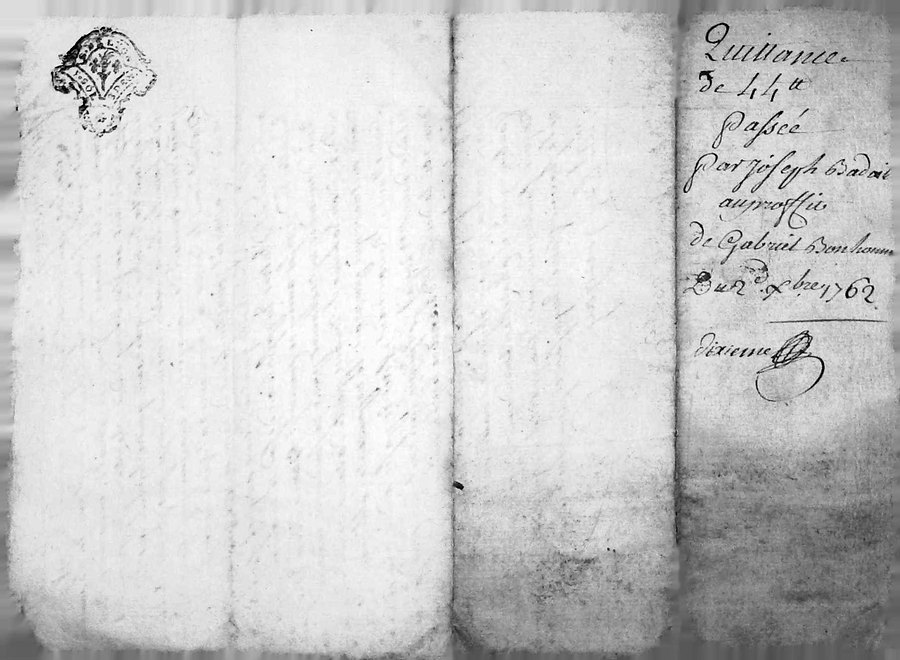 Quittance
de 44 tt
passée
par joseph Badait
auproffit
de Gabriel Bonhomm
Du 2d. xbre 1762
dixieme